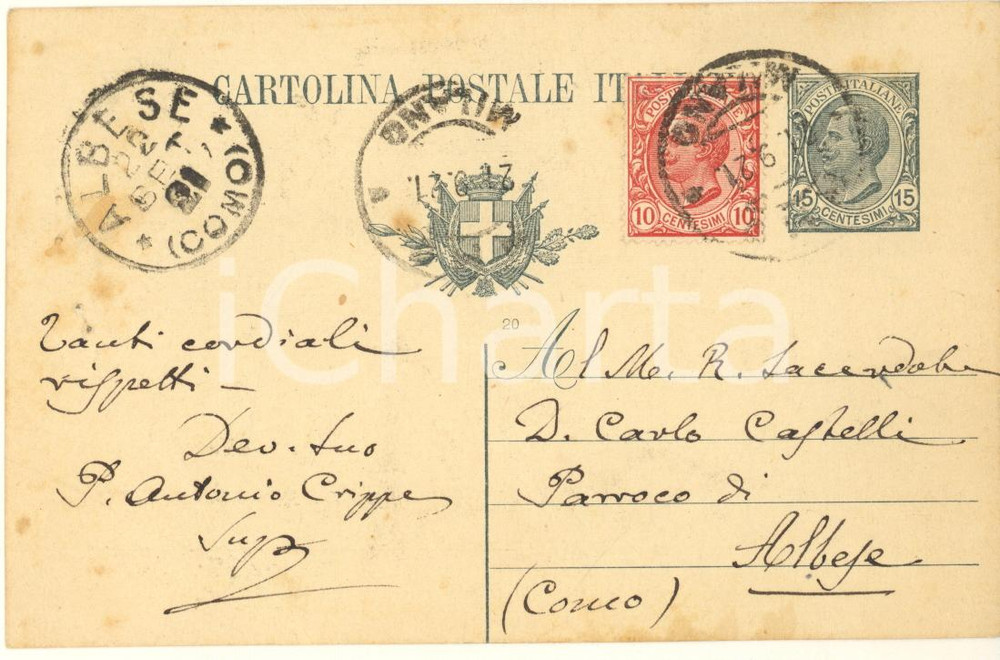 CARTOLINA POSTALE ITALI
ALBESE
(COMO)
SET
21
MILANO
MILANO
9.21
POSTE ITALIANE
10 CENTESIMI 10
POSTE ITALIANE
15 CENTESIMI 15
iCharta
20
Tanti cordiali
rispetti -
Dev. Suo
P. Antonio Crippa
Sup
Al M. R. Sacerdote
D. Carlo Castelli
Parroco di
Albese
(Como)